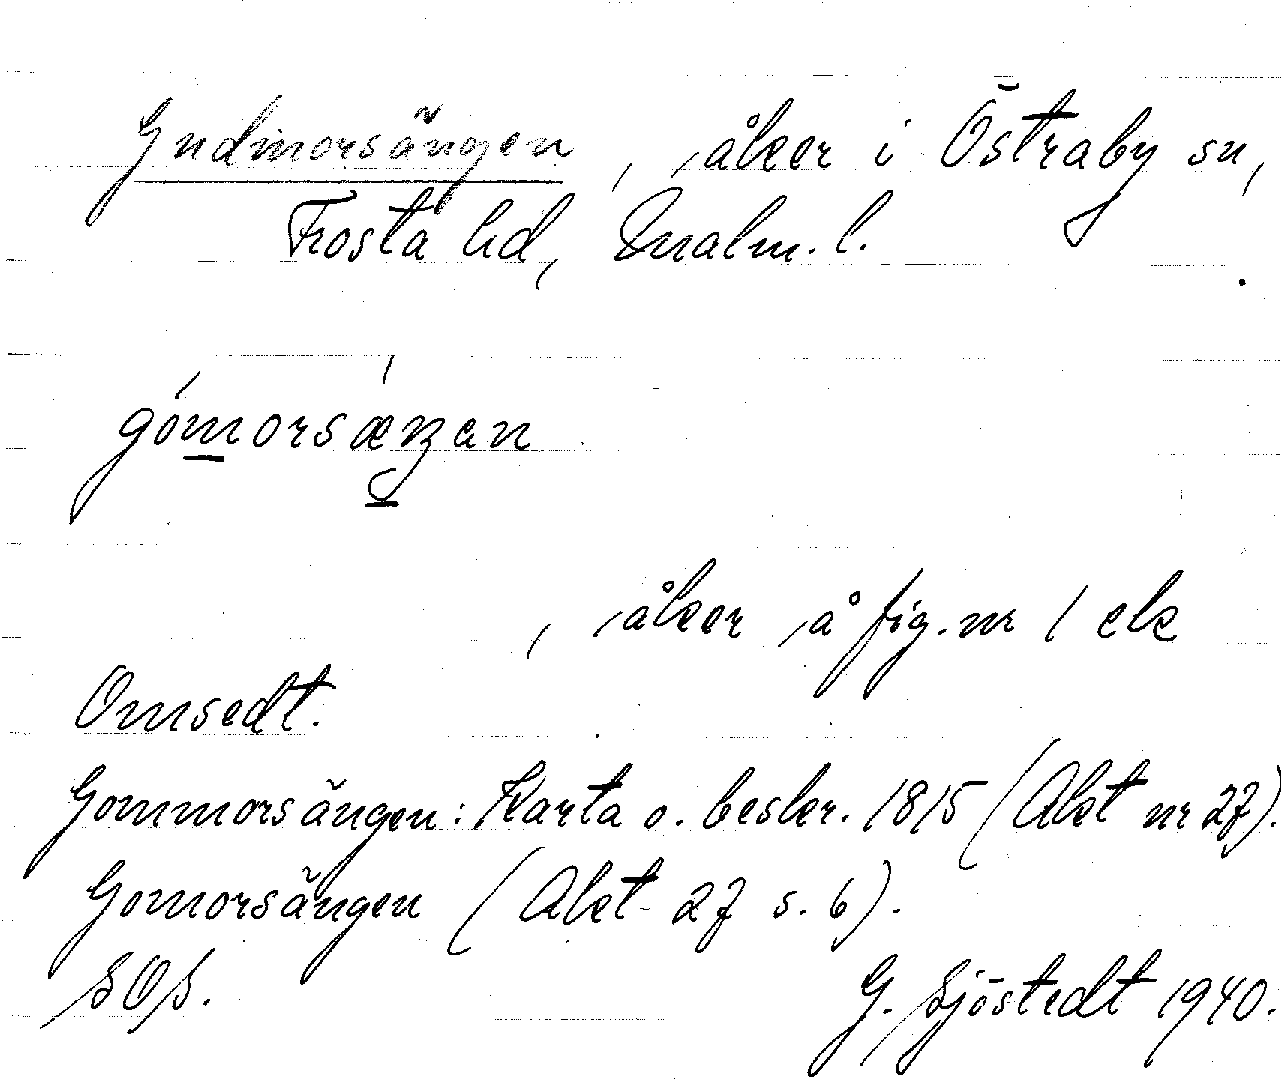 Gudmorsängen, åker i Östraby sn,
Frosta hd, Malm. l.
gómorsæŋan
, åker å fig. nr 1 ek
Omsedt.
Gommorsängen: Karta o. beskr. 1815 (Akt nr 27).
Gomorsängen (Akt 27 s. 6).
SOS.
G. Sjöstedt 1940.